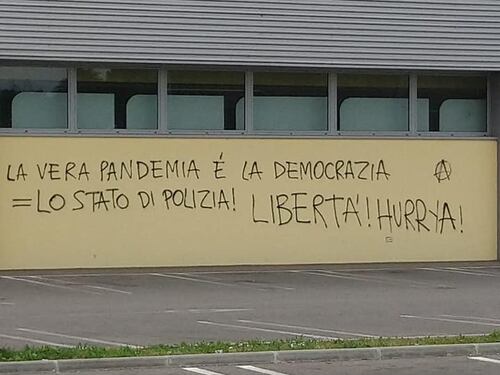 LA VERA PANDEMIA É LA DEMOCRAZIA
= LO STATO DI POLIZIA! LIBERTA'! HURRYA!